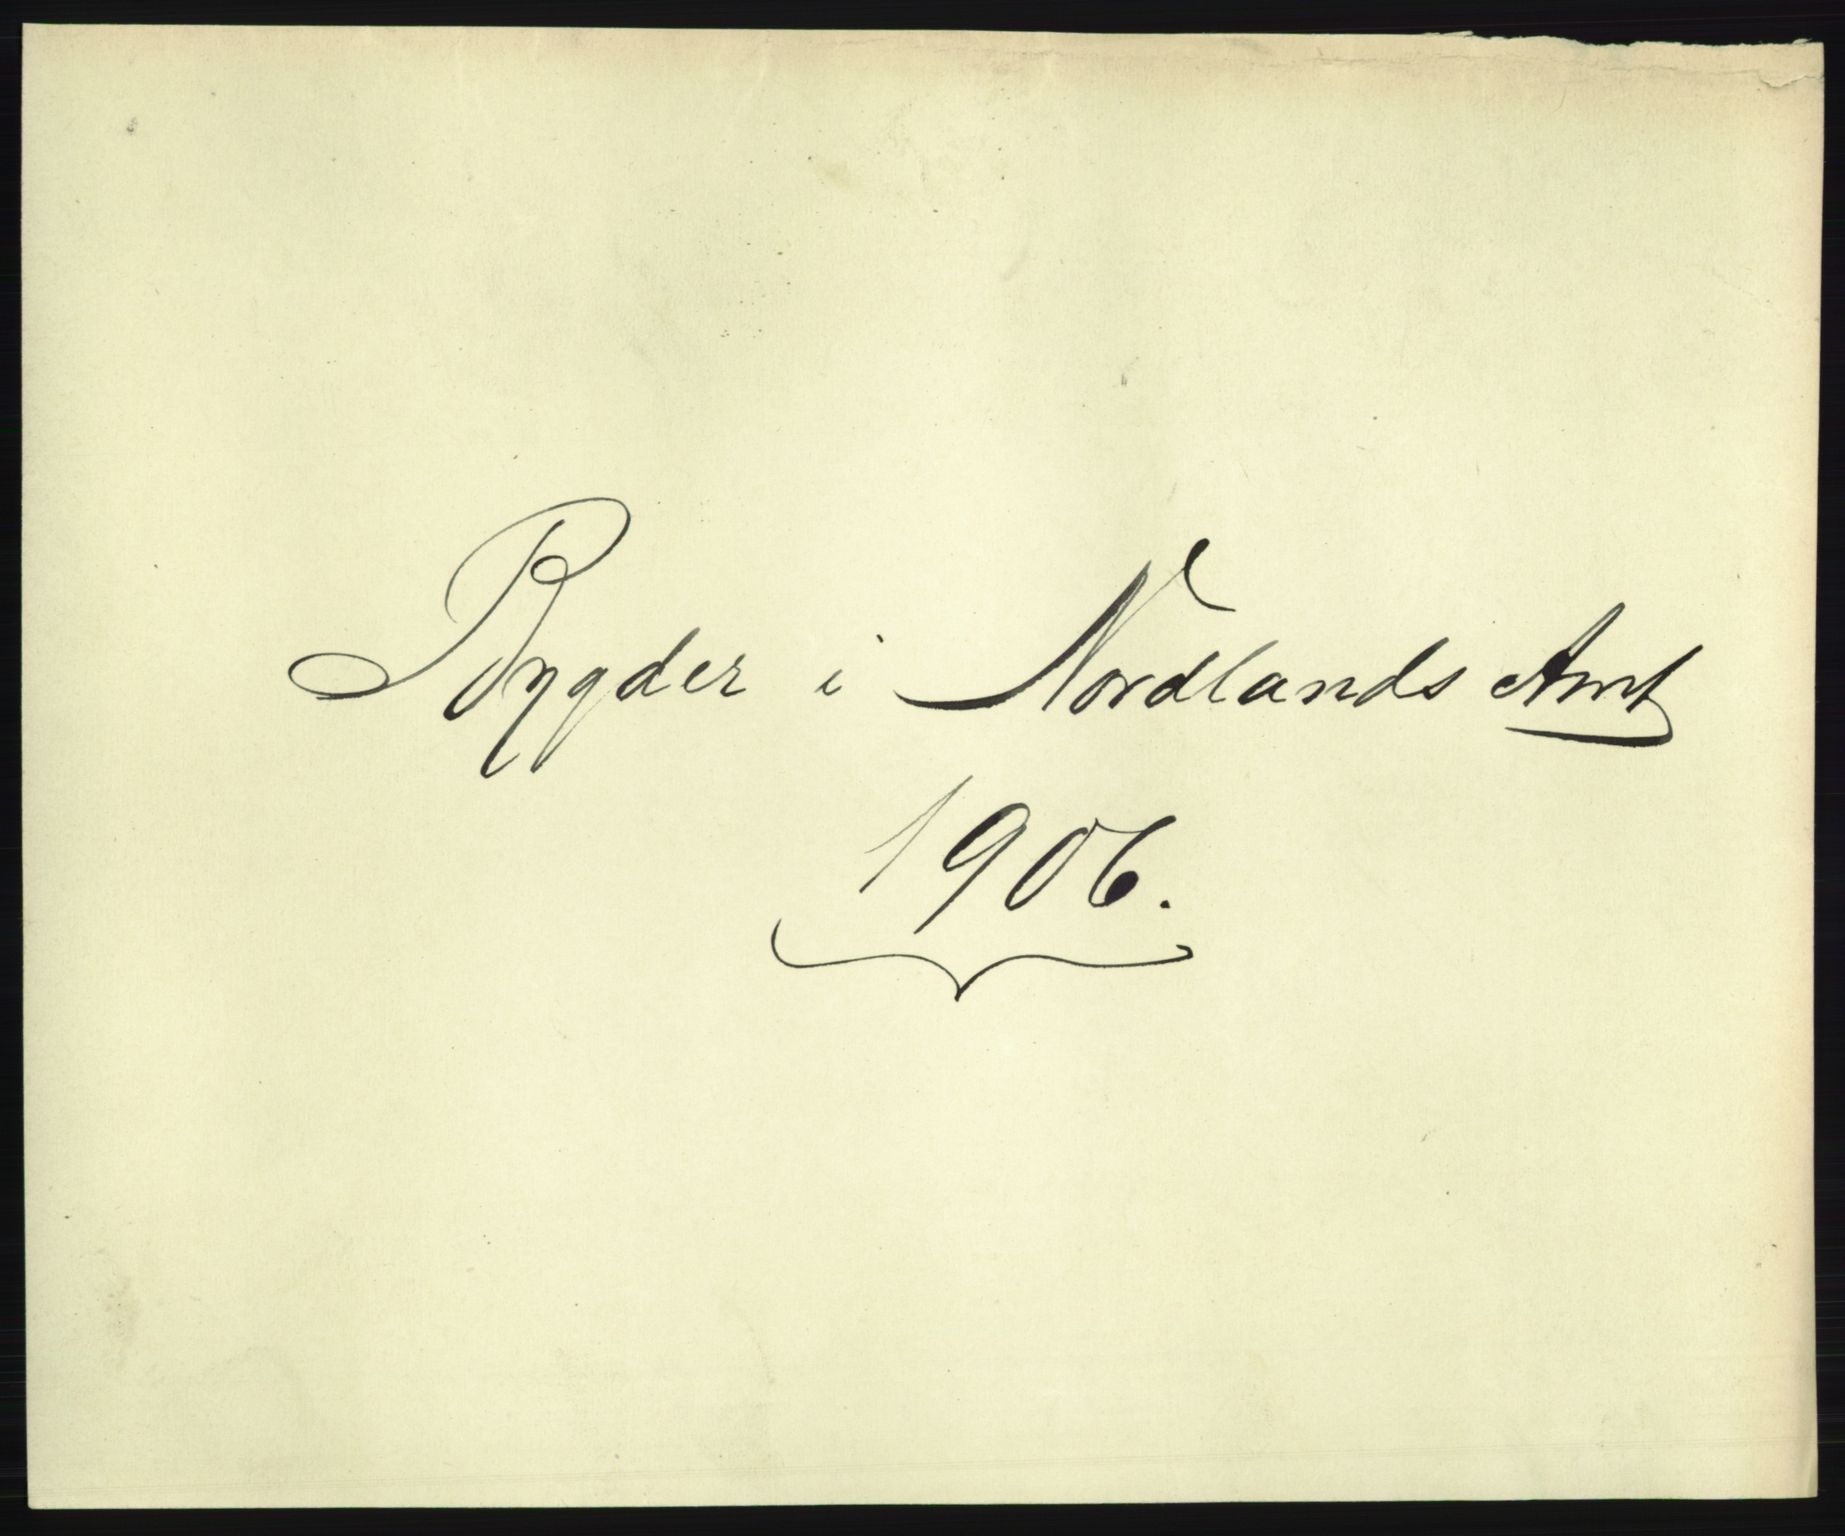 Bygder i Nordlands Amt
1906.